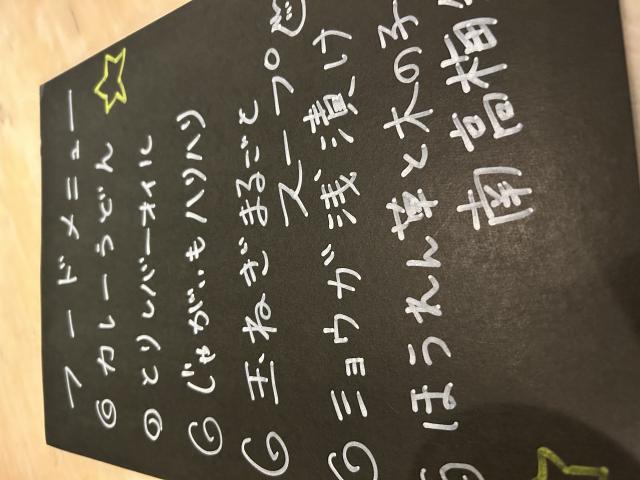 フードメニュー
◎カレーうどん
◎とりレバーオイル
◎じゃがいもハリハリ
◎玉ねぎまるごと
スープ
◎ミョウガ浅漬け
◎ほうれん草と木の子
南高梅